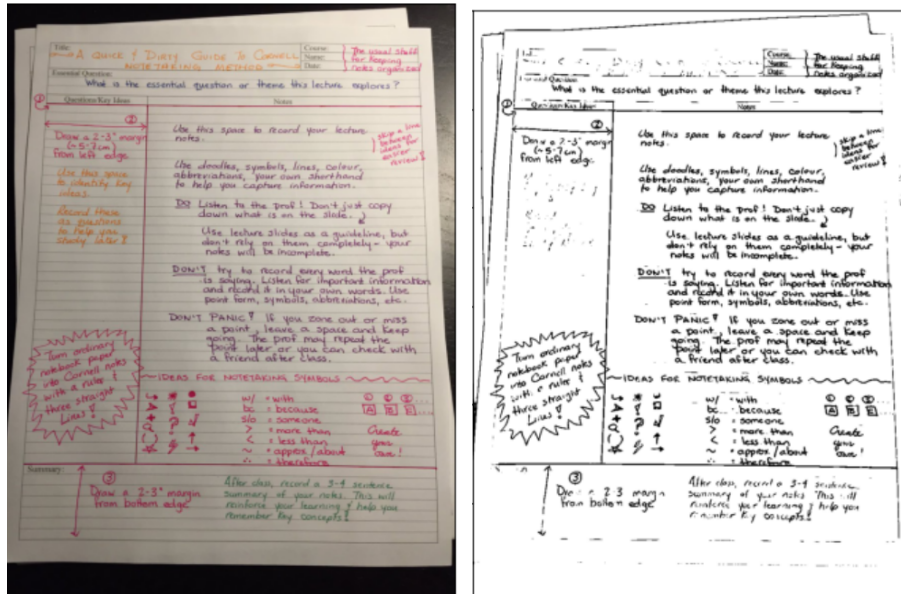 Title:
A QUICK & DIRTY GUIDE TO CORNELL
NOTETAKING METHOD
Course:
Name:
Date:
The usual stuff
for keeping
notes organized
Essential Question:
What is the essential question or theme this lecture explores?
①
Question/Key Ideas
Notes
②
Draw a 2-3" margin
(~5-7cm)
from left edge
Use this space
to identify key
ideas.
Record these
as questions
to help you
study later!
Use this space to record your lecture
notes.
skip a line
between
ideas for
easier
review!
Use doodles, symbols, lines, colour,
abbreviations, your own shorthand
to help you capture information.
DO Listen to the Prof! Don't just copy
down what is on the slide.
Use lecture slides as a guideline, but
don't rely on them completely - your
notes will be incomplete.
DON'T try to record every word the prof
is saying. Listen for important information
and record it in your own words. Use
point form, symbols, abbreviations, etc.
DON'T PANIC! If you zone out or miss
a point, leave a space and keep
going. The prof may repeat the
point later or you can check with
a friend after class.
Turn ordinary
notebook paper
into Cornell notes
with a ruler &
three straight
lines!
IDEAS FOR NOTETAKING SYMBOLS
w/ = with
bc = because
s/o = someone
> = more than
< = less than
~ = approx/about
∴ = therefore
A B E
Create
your
own!
Summary:
③
Draw a 2-3" margin
from bottom edge
After class, record a 3-4 sentence
summary of your notes. This will
reinforce your learning & help you
remember key concepts!
Question/Key Ideas
Notes
What is the essential question or theme this lecture explores?
Course:
Name:
Date:
The usual stuff
for keeping
notes organized
①
②
Draw a 2-3" margin
(~5-7cm)
from left edge
Use this space to record your lecture
notes.
skip a line
between
ideas for
easier
review!
Use doodles, symbols, lines, colour,
abbreviations, your own shorthand
to help you capture information.
DO Listen to the Prof! Don't just copy
down what is on the slide.
Use lecture slides as a guideline, but
don't rely on them completely - your
notes will be incomplete.
DON'T try to record every word the prof
is saying. Listen for important information
and record it in your own words. Use
point form, symbols, abbreviations, etc.
DON'T PANIC! If you zone out or miss
a point, leave a space and keep
going. The prof may repeat the
point later or you can check with
a friend after class.
Turn ordinary
notebook paper
into Cornell notes
with a ruler &
three straight
lines!
IDEAS FOR NOTETAKING SYMBOLS
w/ = with
bc = because
s/o = someone
> = more than
< = less than
~ = approx/about
∴ = therefore
A B E
Create
your
own!
③
Draw a 2-3 margin
from bottom edge
After class, record a 3-4 sentence
summary of your notes. This will
reinforce your learning & help you
remember key concepts!